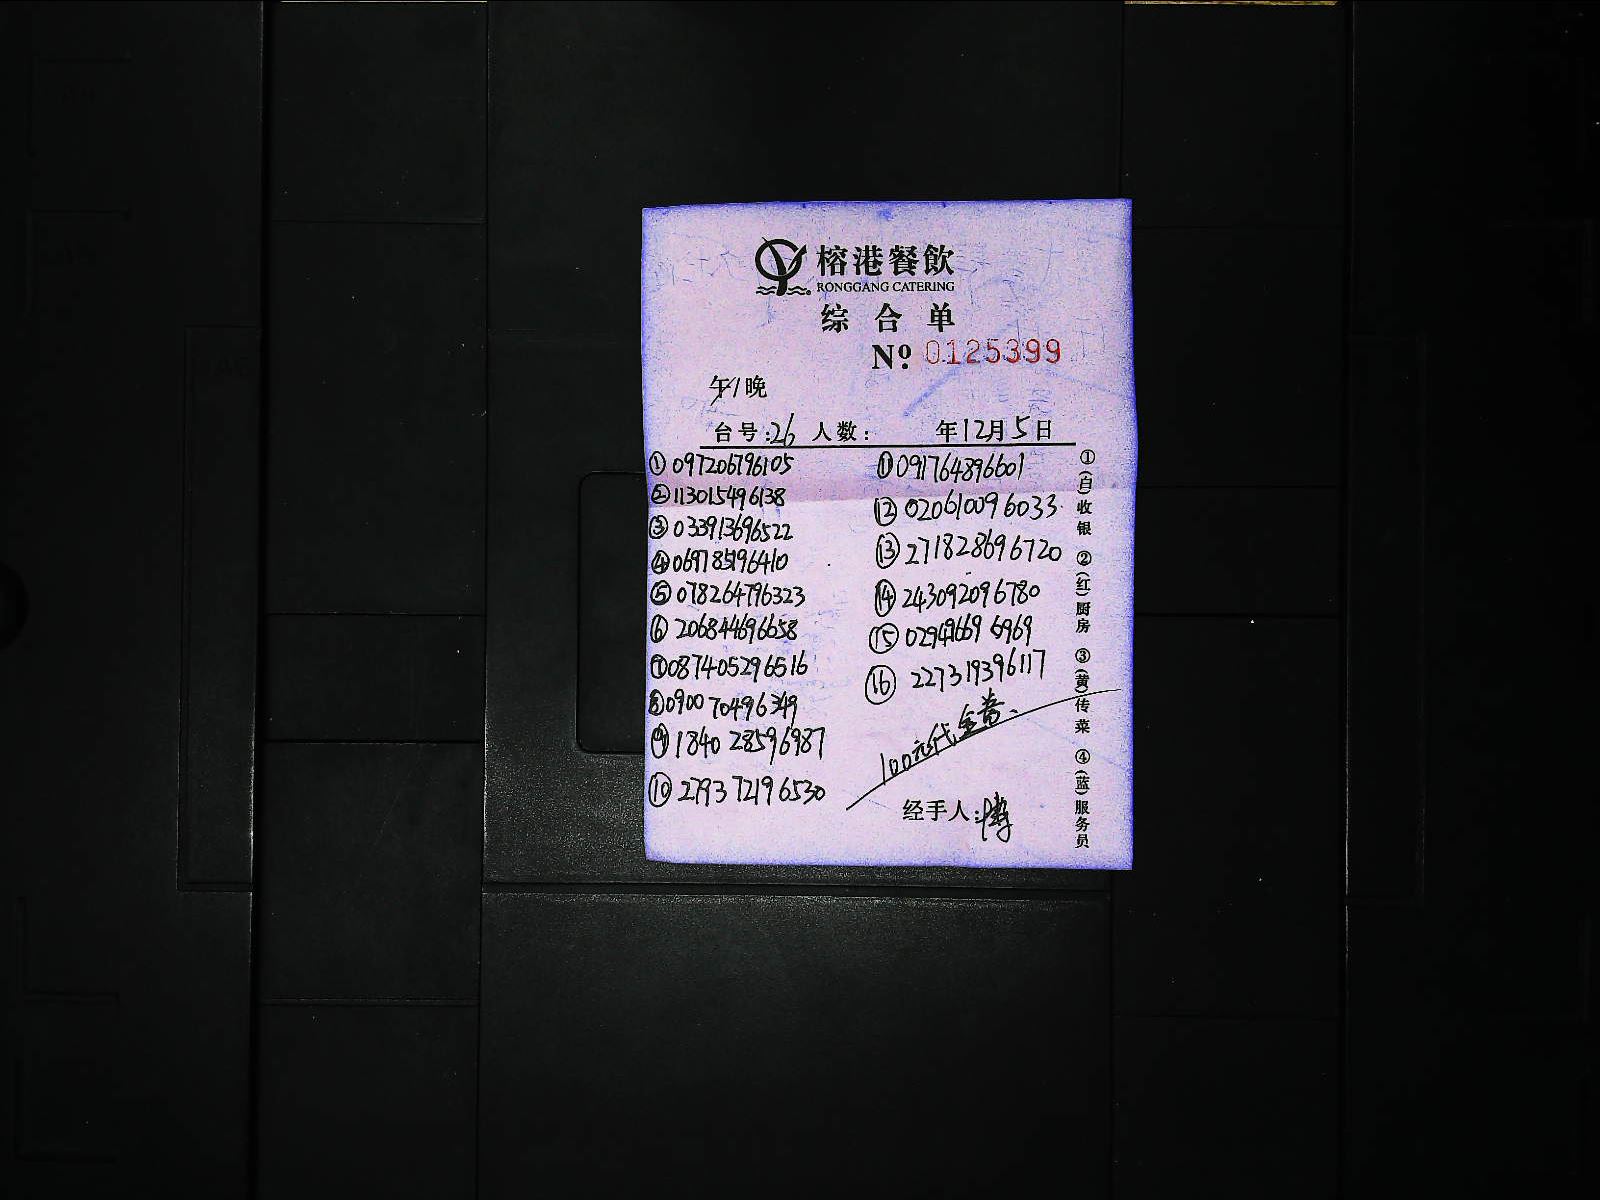 榕港餐飲
RONGGANG CATERING
综合单
Nº 0125399
午/晚
台号:26 人数: 年12月5日
①097206796105
②113015496138
③033913696522
④069785196410
⑤078264796323
⑥206844696658
⑦087405296516
⑧090070496349
⑨184028596987
⑩279372196530
⑪091764896601
⑫020610096033
⑬271828696720
⑭243092096780
⑮029496696969
⑯227319396117
100元代金券
经手人:
①(白)收银 ②(红)厨房 ③(黄)传菜 ④(蓝)服务员